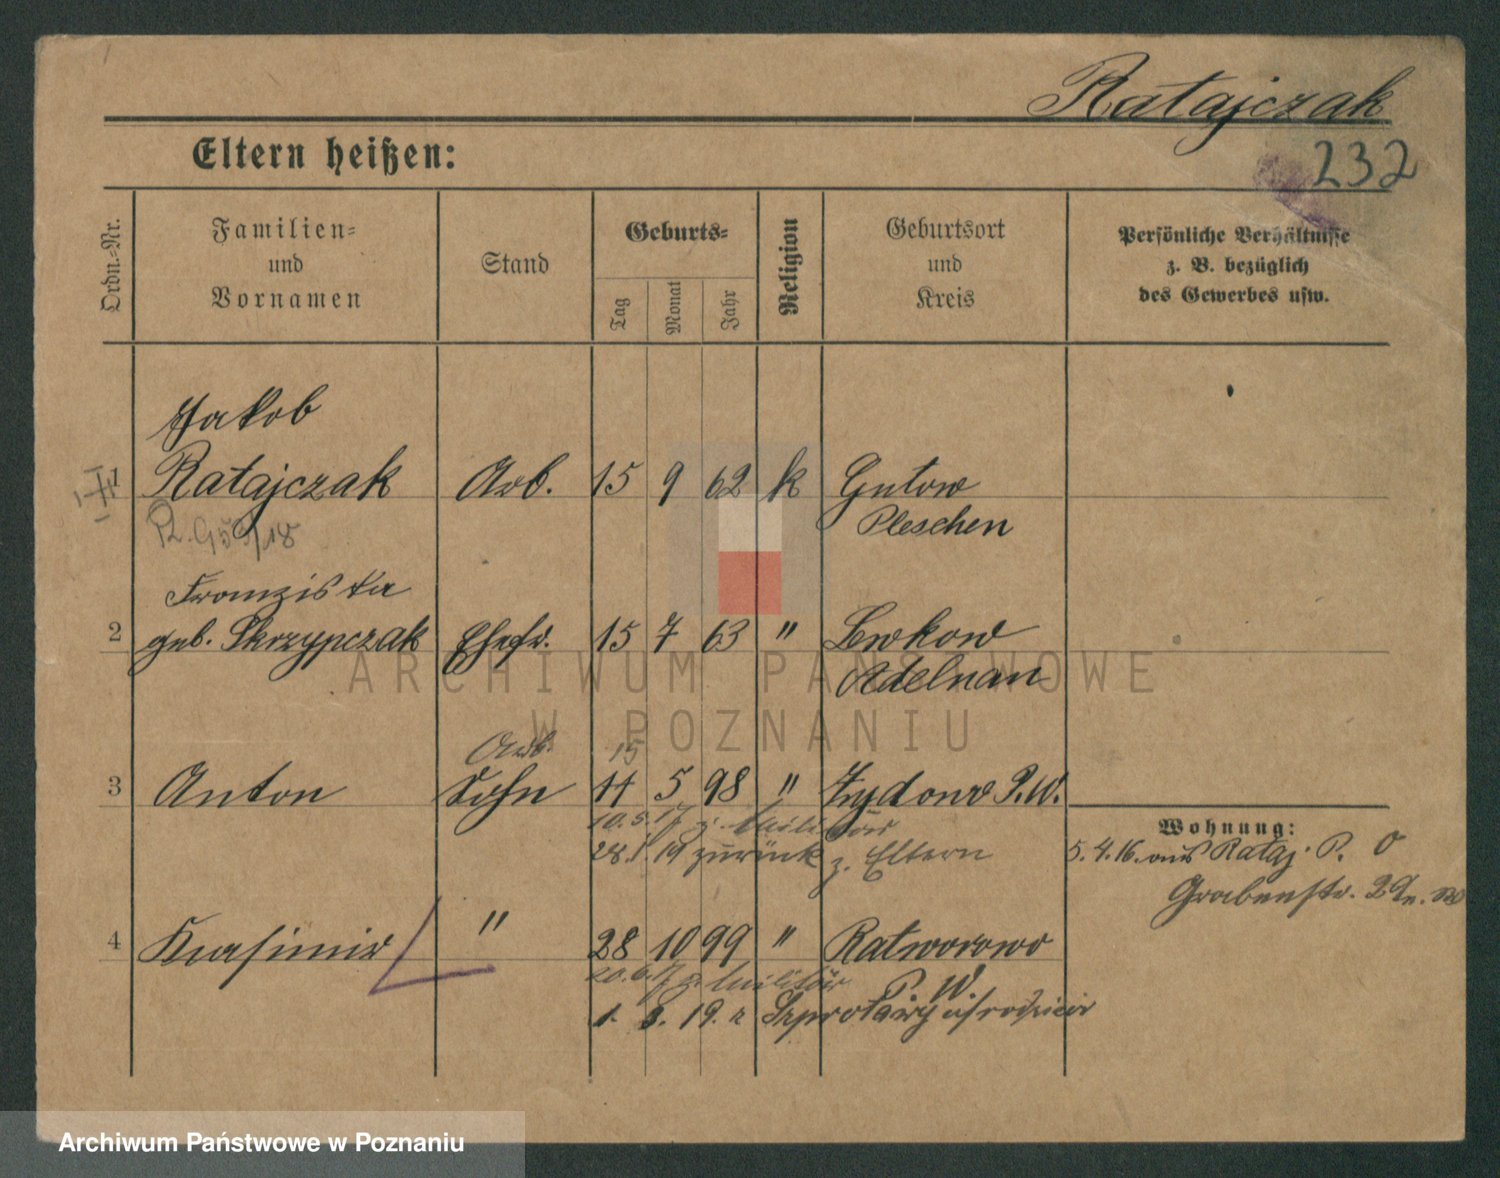 Ratajczak
232
Eltern heißen:
Ordn.-Nr.
Familien-
und
Vornamen
Stand
Geburts-
Tag
Monat
Jahr
Religion
Geburtsort
und
Kreis
Persönliche Verhältnisse
z. B. bezüglich
des Gewerbes usw.
Jakob
1 Ratajczak Arb. 15 9 62 k Gutow
Pleschen
Franziska
2 geb. Skrzypczak Ehefr. 15 7 63 " Lewkow
Adelnau
Arb. 15
3 Anton Sohn 11 5 98 " Zydowo P.W.
10.5.17 z. Militär
28.1.19 zurück z. Eltern
Wohnung:
5.4.16. aus Rataj P. O
Grabenstr.
4 Kasimir " 28 10 99 " Ratworowo
P. W.
20.6.17 z. Militär
1. 8. 19. z Szprotawy
ARCHIWUM PAŃSTWOWE
W POZNANIU
Archiwum Państwowe w Poznaniu